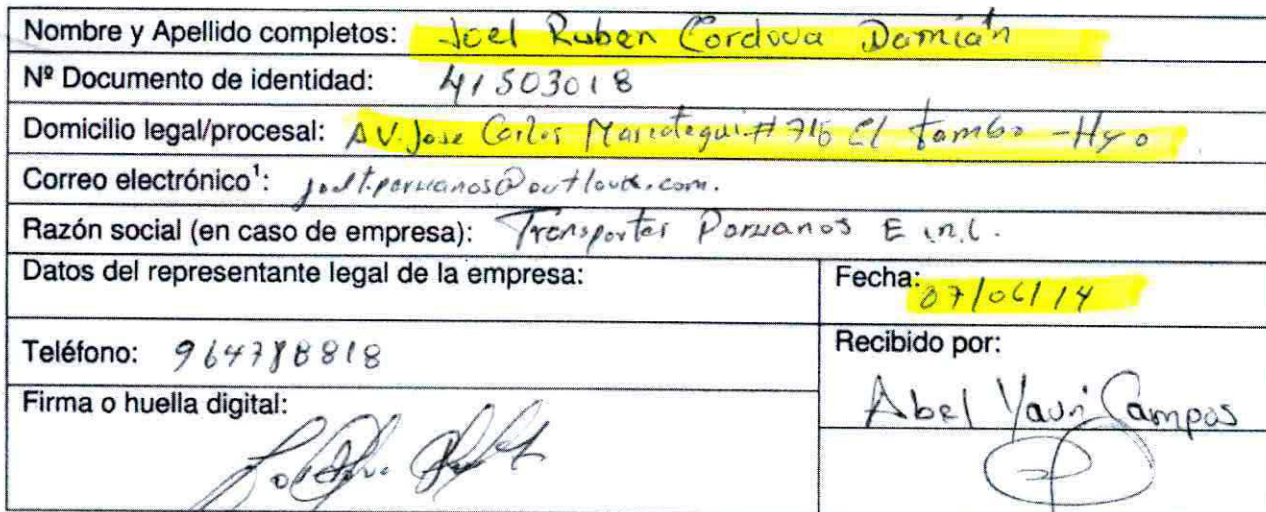 Nombre y Apellido completos: Joel Ruben Cordova Damián
Nº Documento de identidad: 41503018
Domicilio legal/procesal: AV. Jose Carlos Mariategui # 715 El tambo - Hyo
Correo electrónico¹: joelt.peruanos@outlook.com.
Razón social (en caso de empresa): Transportes Peruanos E.I.R.L.
Datos del representante legal de la empresa:
Fecha: 07/06/14
Teléfono: 964788818
Recibido por:
Abel Yauri Campos
Firma o huella digital: